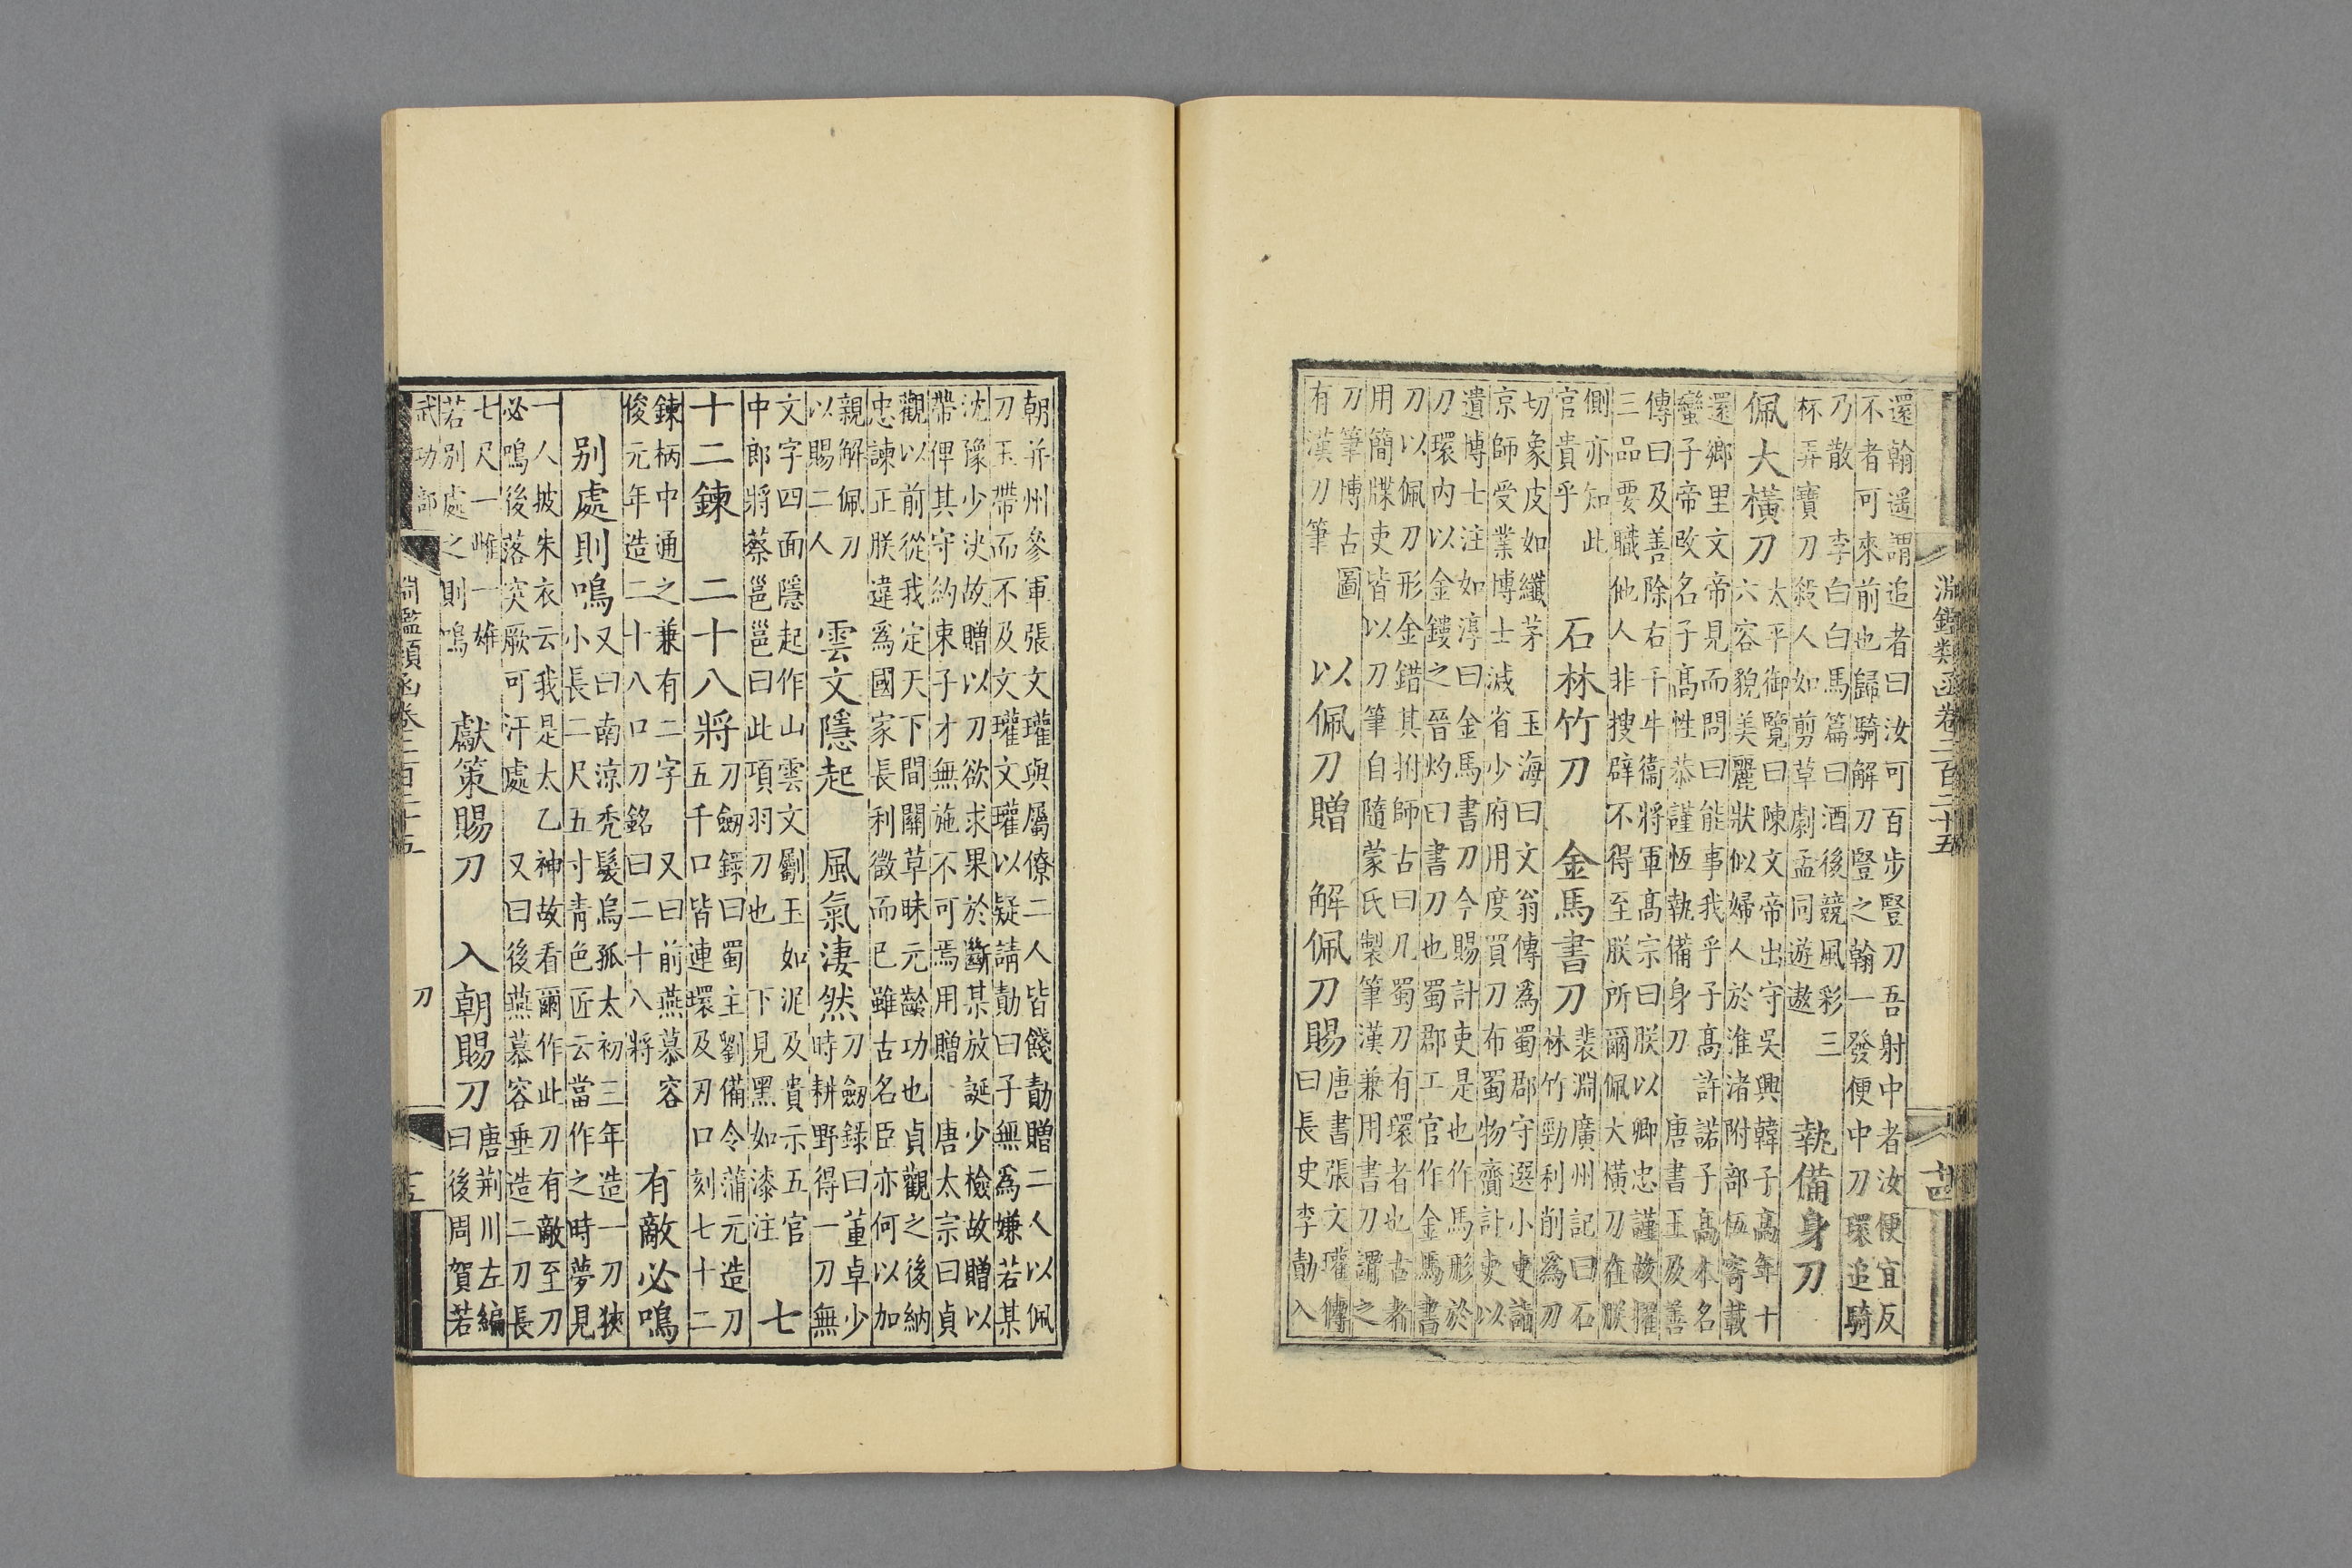 淵鑑類函卷二百二十五
十四
還翰遥謂追者曰汝可百步豎刀吾射中者汝便宜反
不者可來前也歸騎解刀豎之翰一發便中刀環追騎
乃散 李白白馬篇曰酒後競風彩三
杯弄寶刀殺人如剪草劇孟同遊遨
執備身刀
佩大橫刀
太平御覽曰陳文帝出守吳興韓子高年十
六容貌美麗狀似婦人於淮渚附部伍寄載
還鄉里文帝見而問曰能事我乎子高許諾子高本名
蠻子帝改名子高性恭謹恆執備身刀 唐書王及善
傳曰及善除右千牛衞將軍高宗曰朕以卿忠謹故擢
三品要職他人非搜辟不得至朕所爾佩大橫刀在朕
側亦知此
官貴乎
石林竹刀 金馬書刀
裴淵廣州記曰石
林竹勁利削爲刀
切象皮如纖茅 玉海曰文翁傳爲蜀郡守選小吏詣
京師受業博士減省少府用度買刀布蜀物齎計吏以
遺博士注如淳曰金馬書刀今賜計吏是也作馬形於
刀環內以金鏤之晉灼曰書刀也蜀郡工官作金馬書
刀以佩刀形金錯其拊師古曰凡蜀刀有環者也古者
用簡牒吏皆以刀筆自隨蒙氏製筆漢兼用書刀謂之
刀筆博古圖
有漢刀筆
以佩刀贈 解佩刀賜
唐書張文瓘傳
曰長史李勣入
朝并州參軍張文瓘與屬僚二人皆餞勣贈二人以佩
刀玉帶而不及文瓘文瓘以疑請勣曰子無爲嫌若某
沈豫少決故贈以刀欲求果於斷某放誕少檢故贈以
帶俾其守約束子才無施不可焉用贈 唐太宗曰貞
觀以前從我定天下間關草昧元齡功也貞觀之後納
忠諫正朕違爲國家長利徵而已雖古名臣亦何以加
親解佩刀
以賜二人
雲文隱起 風氣淒然
刀劒録曰董卓少
時耕野得一刀無
文字四面隱起作山雲文劚玉如泥及貴示五官
中郎將蔡邕邕曰此項羽刀也 下見黑如漆注
七
十二鍊 二十八將
刀劒録曰蜀主劉備令蒲元造刀
五千口皆連環及刃口刻七十二
鍊柄中通之兼有二字 又曰前燕慕容
俊元年造二十八口刀銘曰二十八將
有敵必鳴
別處則鳴
又曰南涼禿髮烏孤太初三年造一刀狹
小長二尺五寸青色匠云當作之時夢見
一人披朱衣云我是太乙神故看爾作此刀有敵至刀
必鳴後落突厥可汗處 又曰後燕慕容垂造二刀長
七尺一雌一雄
若別處之則鳴
獻策賜刀 入朝賜刀
唐荆川左編
曰後周賀若
武功部
淵鑑類函卷二百二十五
刀